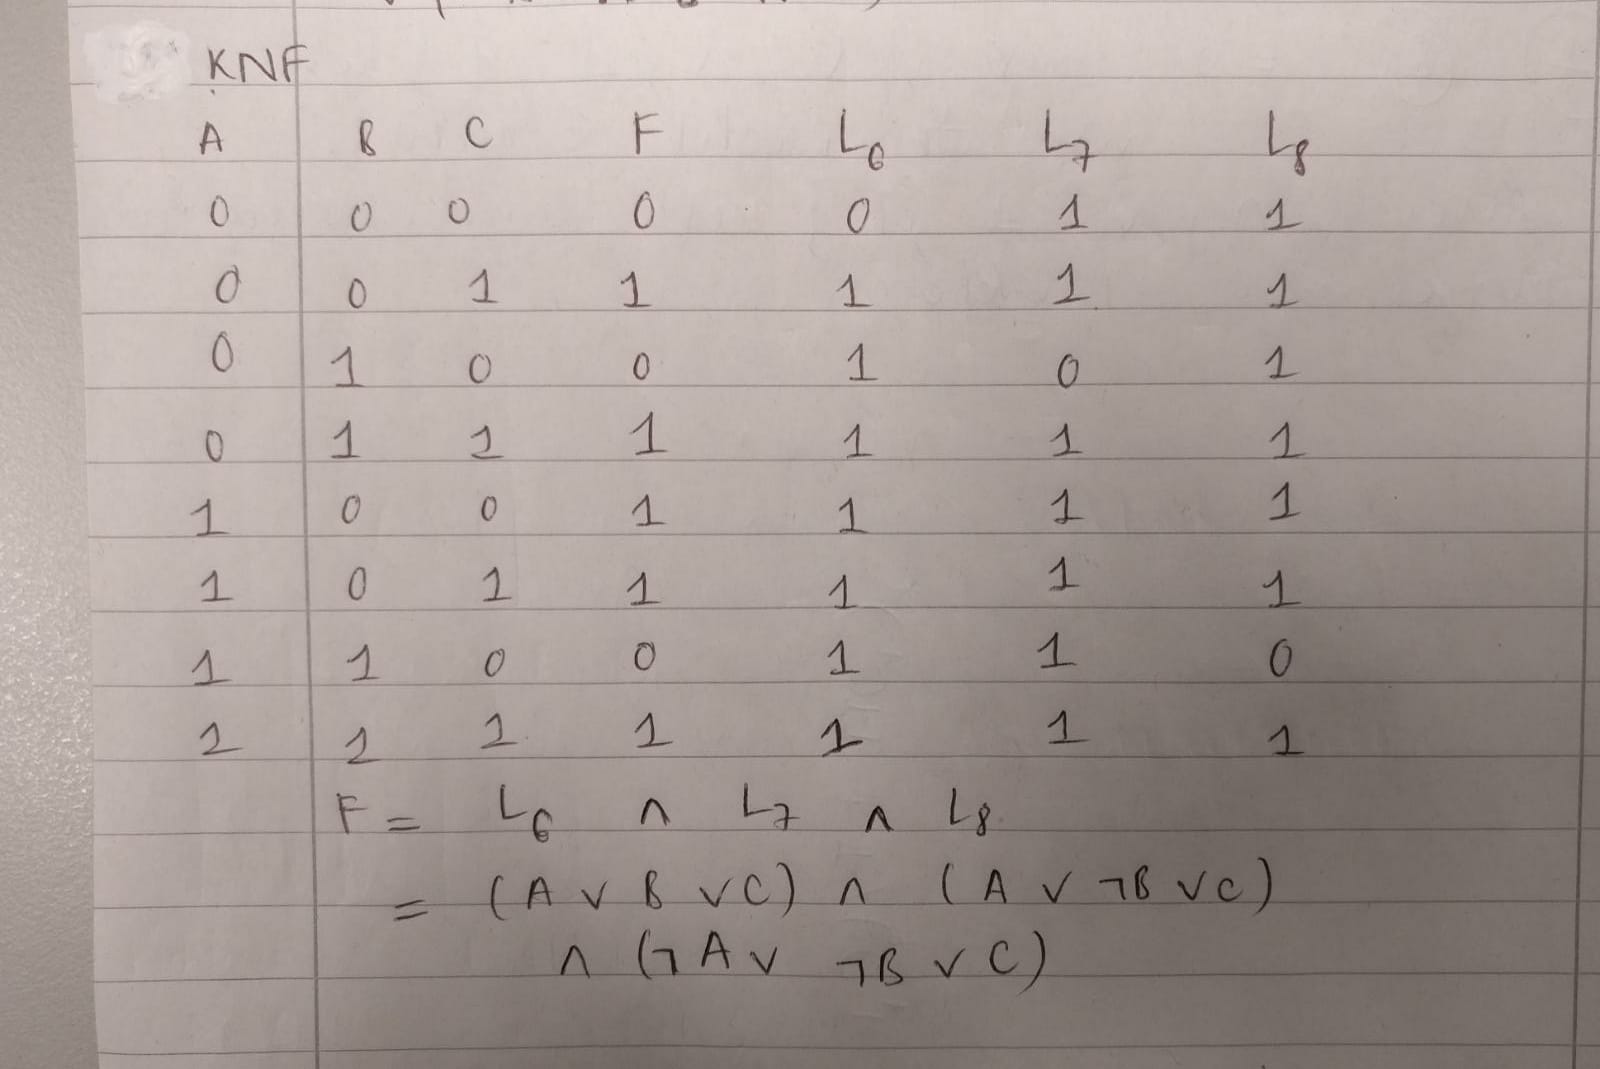 KNF
A B C F L₆ L₇ L₈
0 0 0 0 0 1 1
0 0 1 1 1 1 1
0 1 0 0 1 0 1
0 1 1 1 1 1 1
1 0 0 1 1 1 1
1 0 1 1 1 1 1
1 1 0 0 1 1 0
1 1 1 1 1 1 1
F = L₆ ∧ L₇ ∧ L₈
= (A ∨ B ∨ C) ∧ (A ∨ ¬B ∨ C)
∧ (¬A ∨ ¬B ∨ C)